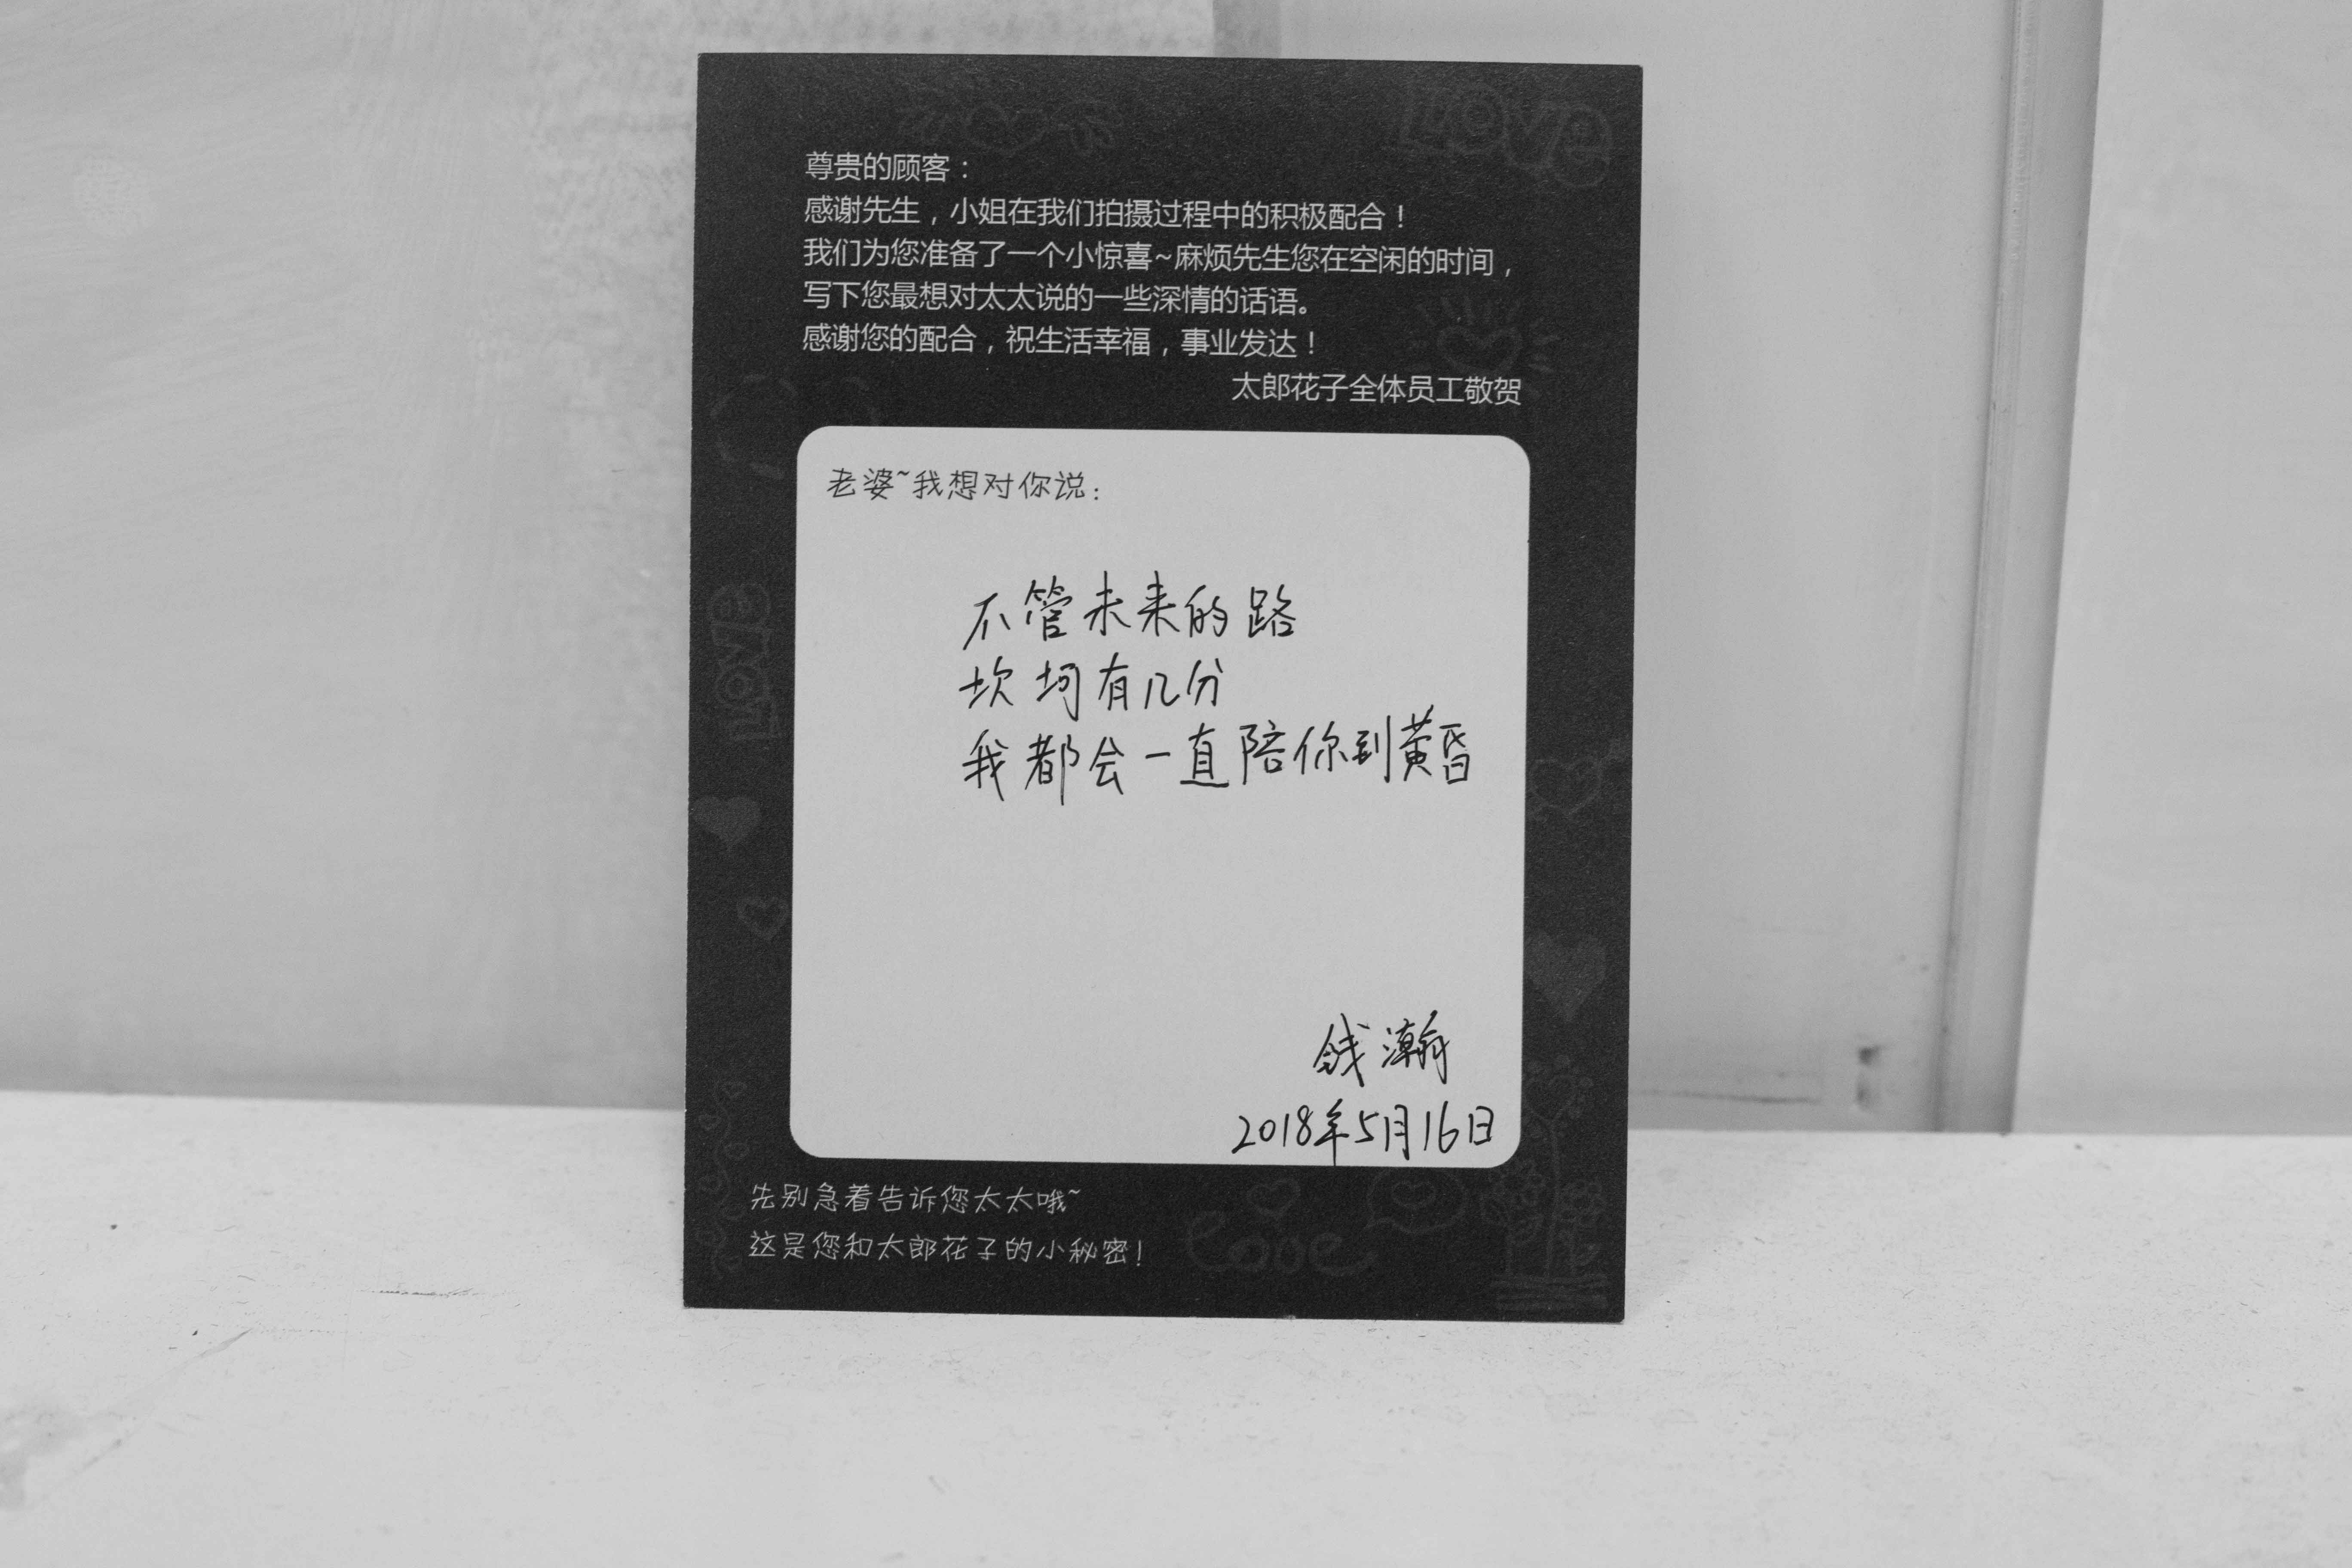 LOVE
尊贵的顾客：
感谢先生，小姐在我们拍摄过程中的积极配合！
我们为您准备了一个小惊喜~麻烦先生您在空闲的时间，
写下您最想对太太说的一些深情的话语。
感谢您的配合，祝生活幸福，事业发达！
太郎花子全体员工敬贺
老婆~我想对你说：
不管未来的路
坎坷有几分
我都会一直陪你到黄昏
LOVE
钱瀚
2018年5月16日
先别急着告诉您太太哦~
这是您和太郎花子的小秘密！
Love